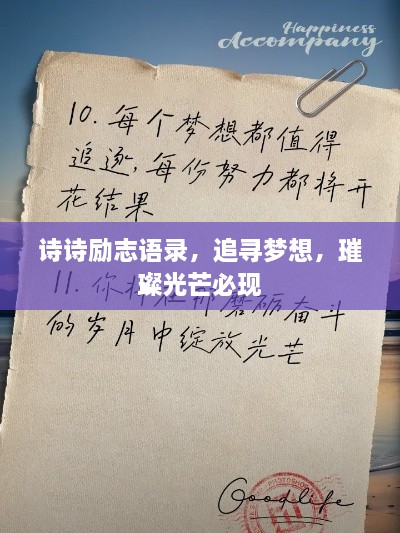 Happiness
Accompany
10. 每个梦想都值得
追逐,每份努力都将开
花结果
诗诗励志语录，追寻梦想，璀
璨光芒必现
11. 你将在那磨砺奋斗
的岁月中绽放光芒
Goodlife